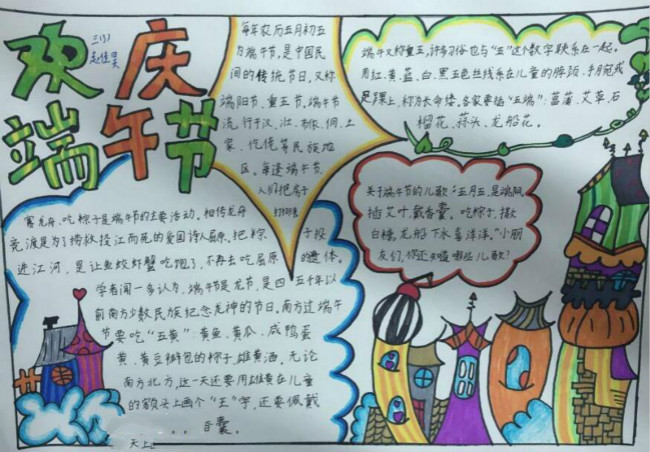 欢庆
端午节
三(1)
每年农历五月初五
为端午节,是中国民
间的传统节日,又称
端阳节、重五节。端午节
流行于汉、壮、布依、侗、土
家、仡佬等民族地
区。每逢端午节,
人们把房子
端午又称重五,许多习俗也与“五”这个数字联系在一起。
用红、黄、蓝、白、黑五色丝线系在儿童的脖颈、手腕或
足踝上,称为长命缕。各家要插“五端”:菖蒲、艾草、石
榴花、蒜头、龙船花。
关于端午节的儿歌:“五月五,是端阳。
插艾叶,戴香囊。吃粽子,撒
白糖。龙船下水喜洋洋。”小朋
友们,你还知道哪些儿歌?
赛龙舟、吃粽子是端午节的主要活动。相传龙舟
竞渡是为了捞救投江而死的爱国诗人屈原。把粽子投
进江河,是让鱼蛟虾蟹吃饱了,不再去吃屈原的遗体。
学者闻一多认为,端午节是龙节,是四五千年以
前南方少数民族纪念龙神的节日。南方过端午
节要吃“五黄”:黄鱼、黄瓜、咸鸭蛋
黄、黄豆瓣包的粽子、雄黄酒。无论
南方北方,这一天还要用雄黄在儿童
的额头上画个“王”字,还要佩戴
香囊。
天上